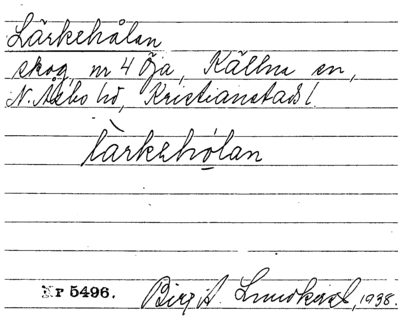 Lärkehålan
skog, nr 4 Öja, Källna sn,
N. Åsbo hd, Kristianstads l.
làrkehólan
Nr 5496. Birgit 1938.